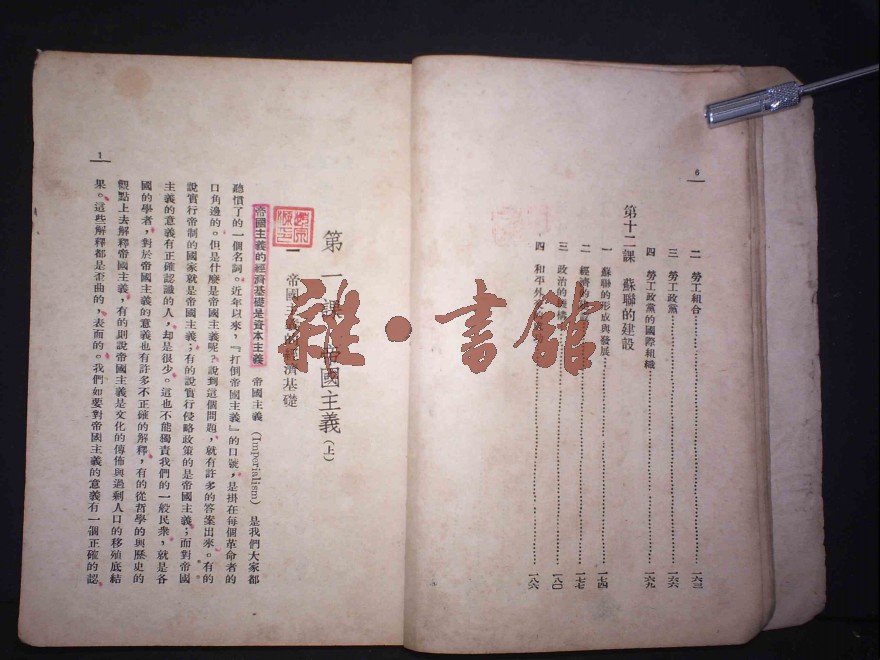 6
二 勞工組合 一六三
三 勞工政黨 一六六
四 勞工政黨的國際組織 一六九
第十二課 蘇聯的建設
一 蘇聯的形成與發展 一七四
二 經濟的 一七七
三 政治的機構 一八〇
四 和平外交 一八六
雜·書館
1
第一課 帝國主義(上)
一 帝國主義的經濟基礎
帝國主義的經濟基礎是資本主義 帝國主義 (Imperialism) 是我們大家都
聽慣了的一個名詞。近年以來,『打倒帝國主義』的口號,是掛在每個革命者的
口角邊的。但是什麼是帝國主義呢?說到這個問題,就有許多的答案出來。有的
說實行帝制的國家就是帝國主義;有的說實行侵略政策的是帝國主義;而對帝國
主義的意義有正確認識的人,却是很少。這也不能獨責我們的一般民衆,就是各
國的學者,對於帝國主義的意義也有許多不正確的解釋,有的從哲學的與歷史的
觀點上去解釋帝國主義,有的則說帝國主義是文化的傳佈與過剩人口的移殖底結
果。這些解釋都是歪曲的,表面的。我們如要對帝國主義的意義有一個正確的認